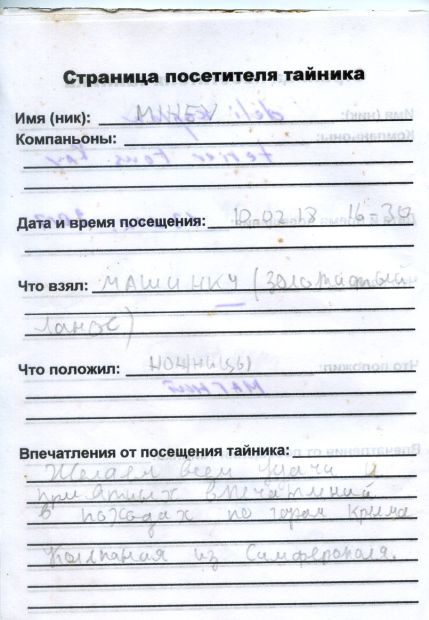 Страница посетителя тайника
Имя (ник):
Компаньоны:
Дата и время посещения: 10.02.18 16 30
Что взял: МАШИНКУ (золотистый
Ланос)
Что положил:
Впечатления от посещения тайника:
Желаем всем удачи и
приятных впечатлений
в походах по горам Крыма
Компания из Симферополя.